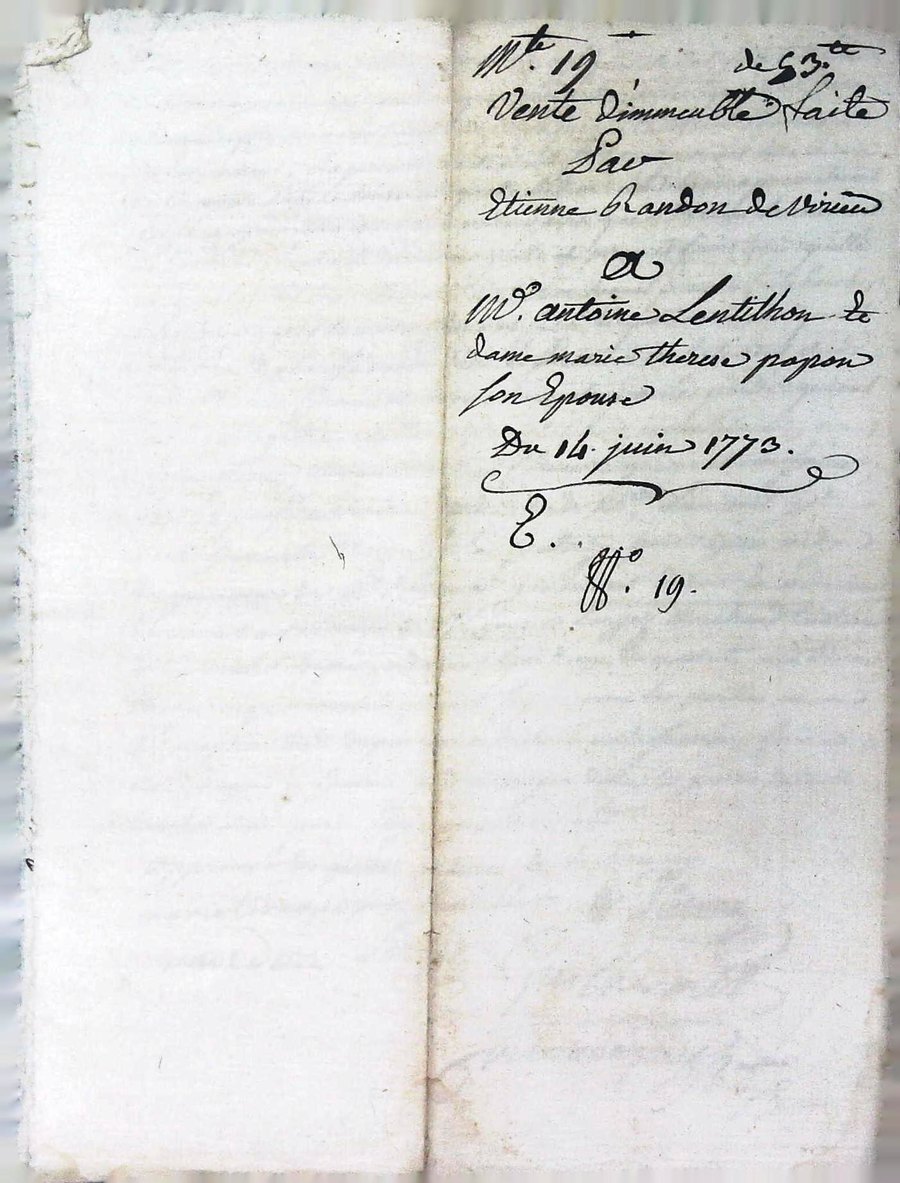 Mte. 19 de 53.tt
Vente d'immeuble faite
Par
Etienne Brandon de Virieu
a
Me. antoine Lentillon et
dame marie therese papon
son Epouse
Du 14. juin 1773.
E.
No. 19.